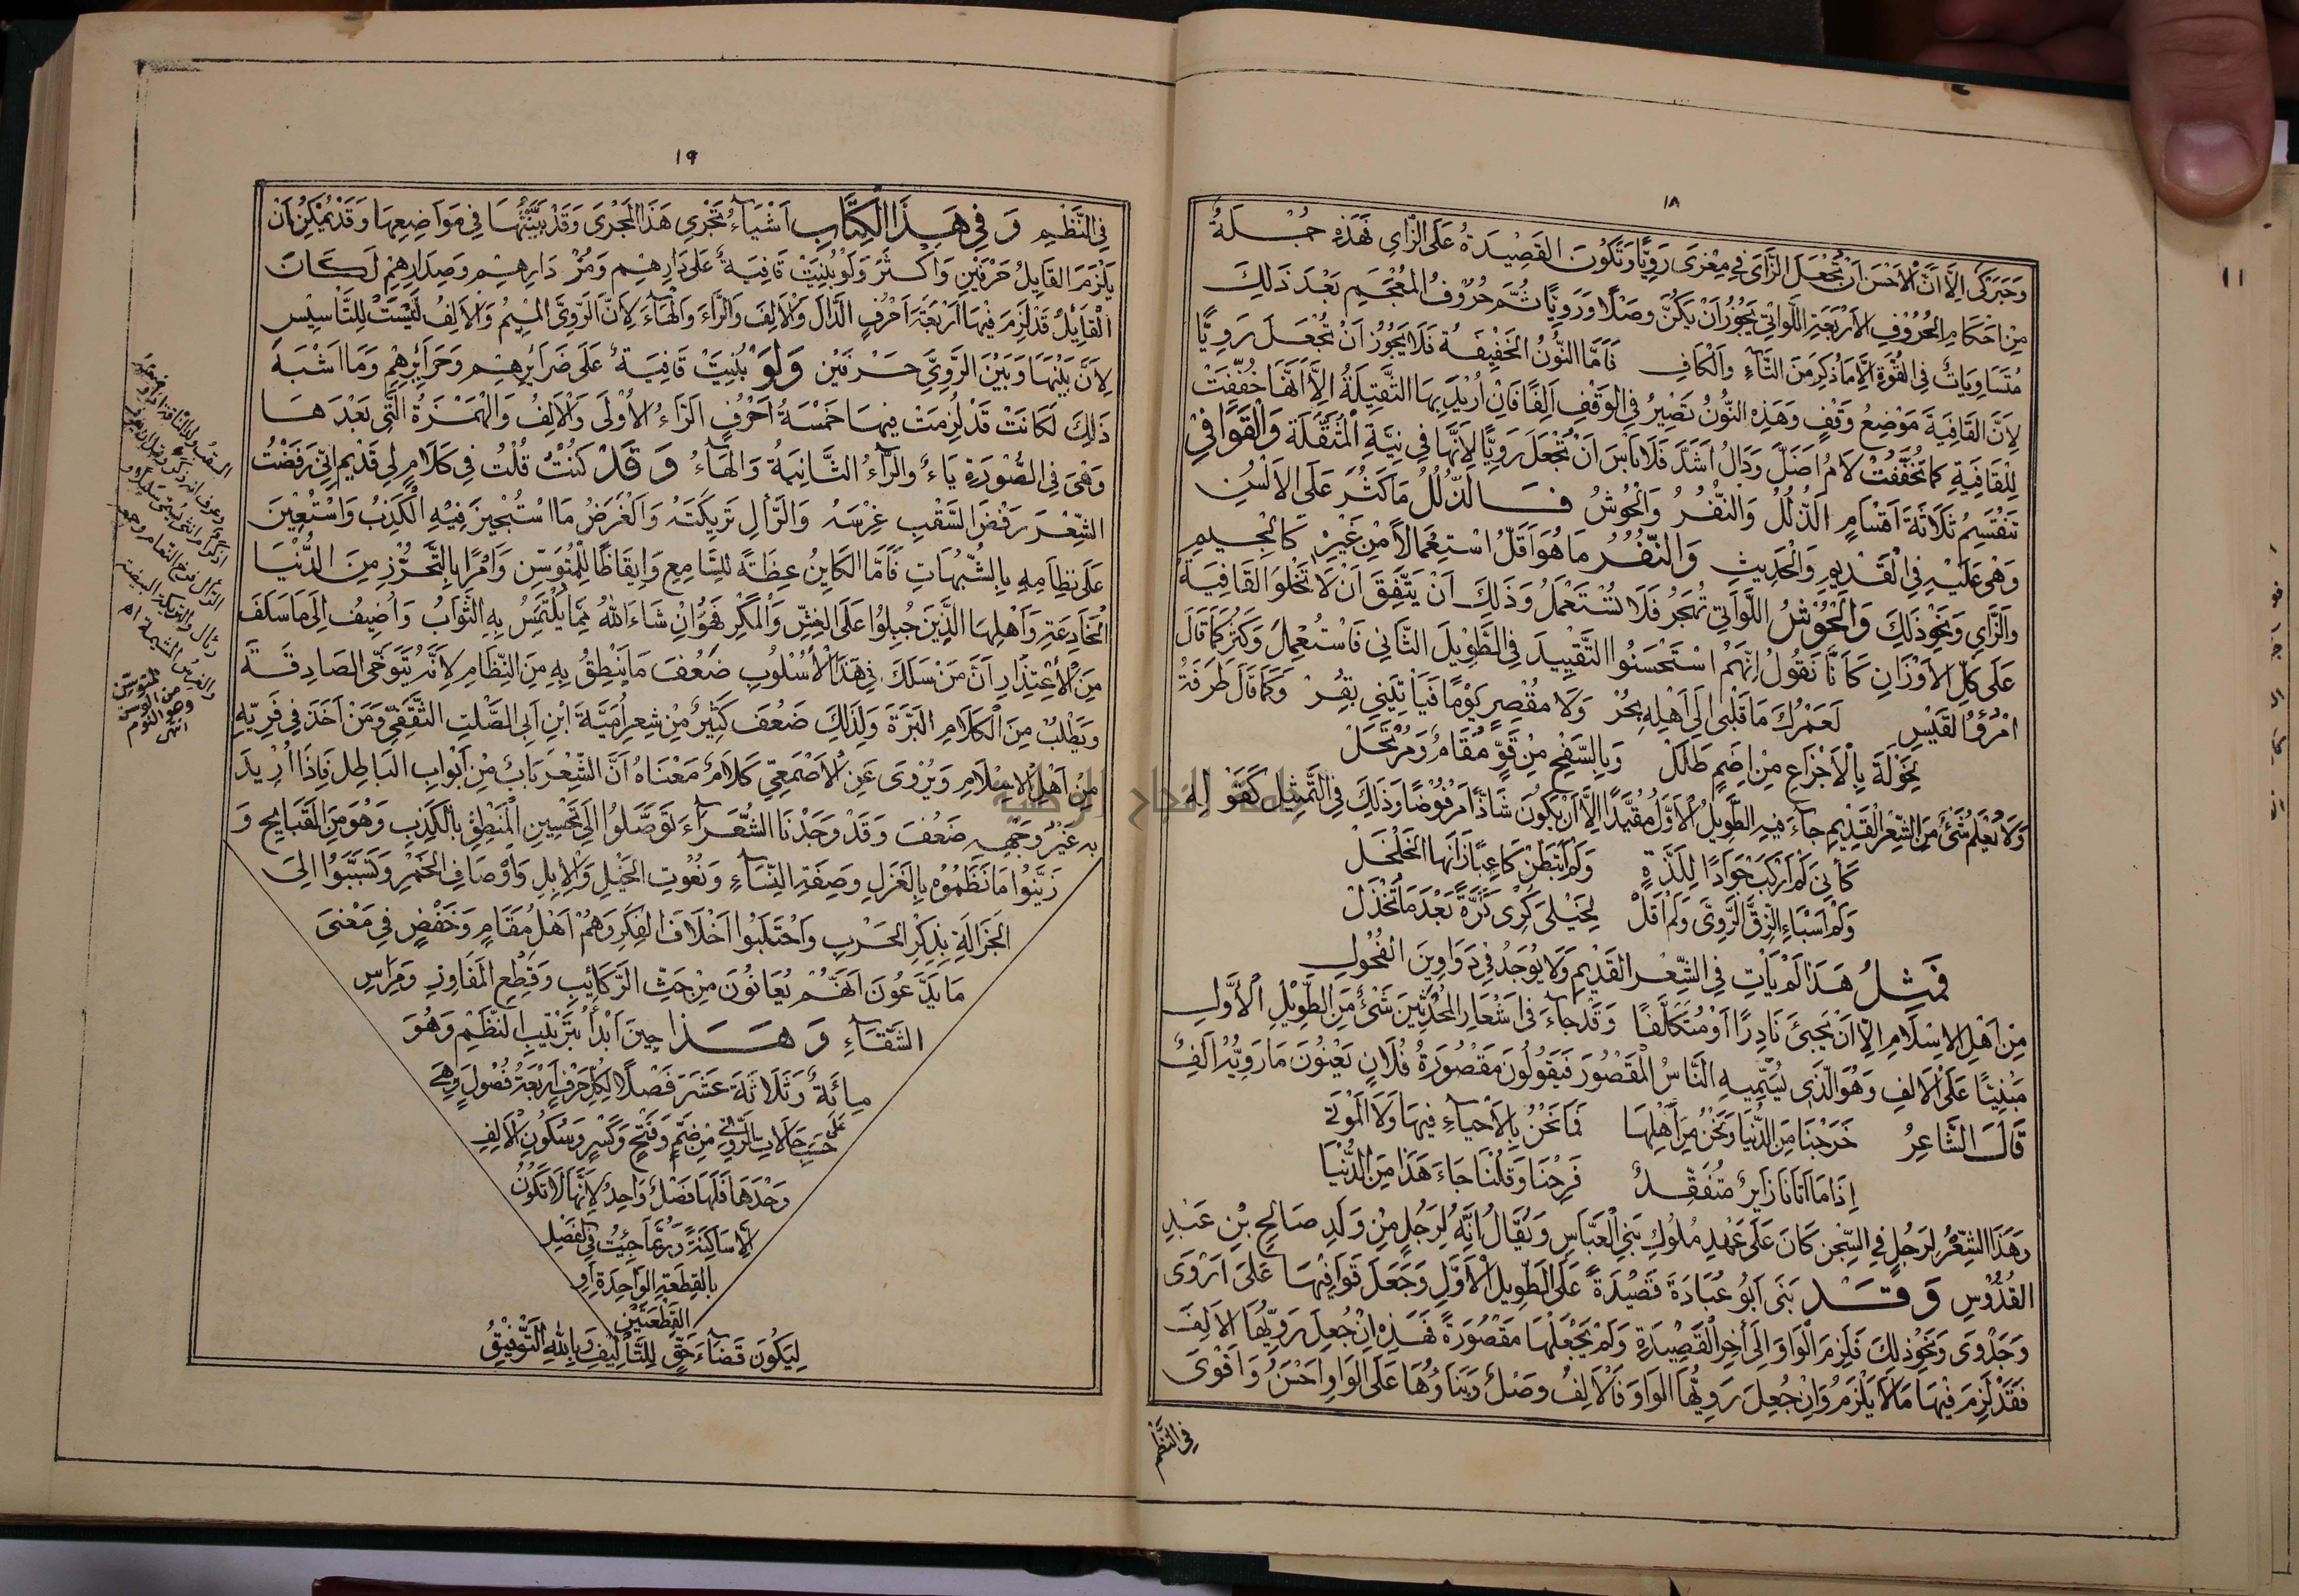 ١٨
وَحَبَرْكَى اِلَّا اَنَّ الْاَحْسَنَ اَنْ تُجْعَلَ الزَّاىَ فِي مِعْزَى رَوِيًّا وَتَكُونَ القَصِيْدَةُ عَلَى الزَّايِ فَهَذِهِ جُمْلَةُ
مِنْ اَحْكَامِ الحُرُوْفِ الاَرْبَعَةِ اللَّوَاتِي يَجُوْزُ اَنْ يَكُنَّ وَصْلًا وَرَوِيًّا ثُمَّ حُرُوْفُ المُعْجَمِ بَعْدَ ذَلِكَ
مُتَسَاوِيَاتٌ فِي القُوَّةِ اِلَّا مَا ذُكِرَ مِنَ التَّآءِ وَالْكَافِ فَاَمَّا النُّونُ الخَفِيْفَةُ فَلَا يَجُوْزُ اَنْ تُجْعَلَ رَوِيًّا
لِاَنَّ القَافِيَةَ مَوْضِعُ وَقْفٍ وَهَذِهِ النُّوْنُ تَصِيْرُ فِي الوَقْفِ اَلِفًا فَاِنْ اُرِيْدَ بِهَا الثَّقِيْلَةُ اِلَّا اَنَّهَا خُفِّفَتْ
لِلْقَافِيَةِ كَمَا تُخَفَّفُ لَامُ اَضَلَّ وَدَالُ اَشَدَّ فَلَا بَاْسَ اَنْ تُجْعَلَ رَوِيًّا لِاَنَّهَا فِي نِيَّةِ الْمُثَقَّلَة وَالْقَوَافِيْ
تَنْقَسِمُ ثَلَاثَةَ اَقْسَامٍ الذُّلُلُ وَالنُّفُرُ وَالْحُوْشُ فَالذُّلُلُ مَا كَثُرَ عَلَى الاَلْسُنِ
وَهْىَ عَلَيْهِ فِي الْقَدِيْمِ وَالْحَدِيْثِ وَالنُّفُرُ مَا هُوَ اَقَلُّ اسْتِعْمَالًا مِنْ غَيْرِهِ كَالْجِيْمِ
وَالزَّايِ وَنَحْوِ ذَلِكَ وَالْحُوْشُ اللَّوَاتِي تُهْجَرُ فَلَا تُسْتَعْمَلُ وَذَلِكَ اَنْ يَتَّفِقَ اَنْ لَا تَخْلُوَ القَافِيَةُ
عَلَى كُلِّ الاَوْزَانِ كَاَنَّا نَقُوْلُ اِنَّهُمُ اسْتَحْسَنُوا التَّقْيِيْدَ فِي الطَّوِيْلِ الثَّانِي فَاسْتُعْمِلَ وَكَثُرَ كَمَا قَالَ
امْرُؤُ القَيْسِ لَعَمْرُكَ مَا قَلْبِيْ اِلَى اَهْلِهِ بِحُرْ وَلَا مُقْصِرٍ يَوْمًا فَيَاْتِيَنِي بِقُرْ وَكَمَا قَالَ طَرَفَةُ
لِخَوْلَةَ بِالْاَجْزَاعِ مِنْ اِضَمٍ طَلَلْ وَبِالسَّفْحِ مِنْ قَوٍّ مُقَامٌ وَمُرْتَحَلْ
وَلَا نَعْلَمُ شَيْئً مِنَ الشِّعْرِ القَدِيْمِ جَآءَ فِيْهِ الطَّوِيْلُ الْاَوَّلُ مُقَيَّدًا اِلَّا اَنْ يَكُونَ شَاذًّا مَرْفُوْضًا وَذَلِكَ فِي التَّمْثِيْلِ كَقَوْلِهِ
كَاَنِّيَ لَمْ اَرْكَبْ جَوَادًا لِلَذَّةٍ وَلَمْ اَتَبَطَّنْ كَاعِبًا زَانَهَا الخَلْخَلْ
وَلَمْ اَسْبَاءِ الزِّقَّ الرَّوِيَّ وَلَمْ اَقُلْ لِخَيْلِيَ كُرِّى كَرَّةً بَعْدَ مَا تُخْذَلْ
فَمِثْلُ هَذَا لَمْ يَاْتِ فِي الشِّعْرِ القَدِيْمِ وَلَا يُوْجَدُ فِي دَوَاوِيْنِ الفُحُوْلِ
مِنْ اَهْلِ الاِسْلَامِ اِلَّا اَنْ يَجِيْئَ نَادِرًا اَوْ مُتَكَلَّفًا وَقَدْ جَآءَ فِي اَشْعَارِ المُحْدَثِيْنَ شَيْئٌ مِنَ الطَّوِيْلِ الْاَوَّلِ
مَبْنِيًّا عَلَى الْاَلِفِ وَهُوَ الَّذِي يُسَمِّيْهِ النَّاسُ الْمَقْصُوْرَ فَيَقُوْلُوْنَ مَقْصُوْرَةُ فُلَانٍ يَعْنُوْنَ مَا رَوِيُّهُ اَلِفٌ
قَالَ الشَّاعِرُ خَرَجْنَا مِنَ الدُّنْيَا وَنَحْنُ مِنَ اَهْلِهَا فَمَا نَحْنُ بِالْاَحْيَاءِ فِيْهَا وَلَا الْمَوْتَى
اِذَا مَا اَتَانَا زَايِرٌ مُتَفَقِّدٌ فَرِحْنَا وَقُلْنَا جَاءَ هَذَا مِنَ الدُّنْيَا
وَهَذَا الشِّعْرُ لِرَجُلٍ فِي السِّجْنِ كَانَ عَلَى عَهْدِ مُلُوْكِ بَنِي الْعَبَّاسِ وَيُقَالُ اِنَّهُ لِرَجُلٍ مِنْ وَلَدِ صَالِحِ بْنِ عَبْدِ
القُدُّوْسِ وَقَدْ بَنَى اَبُو عُبَادَةَ قَصِيْدَةً عَلَى الطَّوِيْلِ الْاَوَّلِ وَجَعَلَ قَوَافِيَهَا عَلَى اَرْوَى
وَجَدْوَى وَنَحْوِ ذَلِكَ فَلَزِمَ الْوَاوَ اِلَى أَخِرِ الْقَصِيْدَةِ وَلَمْ يَجْعَلْهَا مَقْصُوْرَةً فَهَذِهِ اِنْ جُعِلَ رَوِيُّهَا الاَلِفَ
فَقَدْ لَزِمَ فِيْهَا مَا لَا يَلْزَمُ وَاِنْ جُعِلَ رَوِيُّهَا الوَاوَ فَالْاَلِفُ وَصْلٌ وَبِنَاؤُهَا عَلَى الوَاوِ اَحْسَنُ وَاَقْوَى
فِي النَّظْمِ
١٩
فِي النَّظْمِ وَفِي هَذَا الْكِتَابِ اَشْيَآءُ تَجْرِي هَذَا الْمَجْرَى وَقَدْ بَيَّنْتُهَا فِي مَوَاضِعِهَا وَقَدْ يُمْكِنُ اَنْ
يَلْزَمَ القَايِلُ حَرْفَيْنِ وَاَكْثَرَ وَلَوْ بُنِيَتْ قَافِيَةٌ عَلَى دَارِهِمْ وَمُرْ دَارِهِمْ وَصِدَارِهِمْ لَكَانَ
القَائِلُ قَدْ لَزِمَ فِيْهَا اَرْبَعَةَ اَحْرُفٍ الدَّالَ وَالْاَلِفَ وَالرَّاءَ وَالْهَآءَ لِاَنَّ الرَّوِيَّ المِيْمُ وَالاَلِفُ لَيْسَتْ لِلتَّاْسِيْسِ
لِاَنَّ بَيْنَهَا وَبَيْنَ الرَّوِيِّ حَرْفَيْنِ وَلَوْ بُنِيَتْ قَافِيَةٌ عَلَى ضَرَائِرِهِمْ وَحَرَائِرِهِمْ وَمَا اَشْبَهَ
ذَلِكَ لَكَانَتْ قَدْ لُزِمَتْ فِيْهَا خَمْسَةُ اَحْرُفٍ الرَّاءُ الاُوْلَى وَالْاَلِفُ وَالْهَمْزَةُ الَّتِي بَعْدَهَا
وَهْىَ فِي الصُّوْرَةِ يَاءٌ وَالرَّآءُ الثَّانِيَةُ وَالْهَآءُ وَقَدْ كُنْتُ قُلْتُ فِي كَلَامٍ لِي قَدِيْمٍ اِنِّي رَفَضْتُ
الشِّعْرَ رَفْضَ السَّقْبِ غِرْسَهُ وَالرَّاْلِ تَرِيْكَتَهُ وَالْغَرَضُ مَا اسْتُجِيْزَ فِيْهِ الْكَذِبُ وَاسْتُعِيْنَ
عَلَى نِظَامِهِ بِالشُّبُهَاتِ فَاَمَّا الكَايِنُ عِظَةً لِلسَّامِعِ وَاِيْقَاظًا لِلْمُتَوَسِّنِ وَاَمْرًا بِالتَّحَرُّزِ مِنَ الدُّنْيَا
الْخَادِعَةِ وَاَهْلِهَا الَّذِيْنَ جُبِلُوْا عَلَى الغِشِّ وَالْمَكْرِ فَهُوَ اِنْ شَاءَ اللهُ مِمَّا يُلْتَمَسُ بِهِ الثَّوَابُ وَاُضِيْفُ اِلَى مَا سَلَفَ
مِنَ الْاِعْتِذَارِ اَنَّ مَنْ سَلَكَ فِي هَذَا الْاُسْلُوْبِ ضَعُفَ مَا يَنْطِقُ بِهِ مِنَ النِّظَامِ لِاَنَّهُ يَتَوَخَّى الصَادِقَةَ
وَيَطْلُبُ مِنَ الْكَلَامِ البَرَّةَ وَلِذَلِكَ ضَعُفَ كَثِيْرٌ مِنْ شِعِرِ اُمَيَّةَ ابْنِ اَبِي الصَّلْتِ الثَّقَفِيِّ وَمَنْ اَخَذَ فِي فَرِيِّهِ
مِنْ اَهْلِ الاِسْلَامِ وَيُرْوَى عَنِ الْاَصْمَعِيِّ كَلَامٌ مَعْنَاهُ اَنَّ الشِّعْرَ بَابٌ مِنْ اَبْوَابِ البَاطِلِ فَاِذَا اُرِيْدَ
بِهِ غَيْرُ وَجْهِهِ ضَعُفَ وَقَدْ وَجَدْنَا الشُّعَرَآءَ تَوَصَّلُوْا اِلَى تَحْسِيْنِ الْمَنْطِقِ بِالْكَذِبِ وَهُوَ مِنَ القَبَايِحِ وَ
زَيَّنُوْا مَا نَظَمُوْهُ بِالْغَزَلِ وَصِفَةِ النِّسَآءِ وَنُعُوْتِ الخَيْلِ وَالْاِبِلِ وَاَوْصَافِ الخَمْرِ وَتَسَبَّبُوْا اِلَى
الجَزَالَةِ بِذِكْرِ الحَرْبِ وَاحْتَلَبُوْا اَخْلَافَ الفِكَرِ وَهُمْ اَهْلُ مُقَامٍ وَخَفْضٍ فِي مَعْنَى
مَا يَدَّعُوْنَ اَنَّهُمْ يُعَانُوْنَ مِنْ حَثِّ الرَّكَائِبِ وَقَطْعِ المَفَاوِزِ وَمِرَاسِ
الشَّقَآءِ وَهَذَا حِيْنَ اَبْدَأُ بِتَرْتِيْبِ النَّظْمِ وَهُوَ
مِائَةٌ وَثَلَاثَةَ عَشَرَ فَصْلًا لِكُلِّ حَرْفٍ اَرْبَعَةُ فُصُوْلٍ وَهِيَ
عَلَى حَسَبِ حَالَاتِ الرَّوِيِّ مِنْ ضَمٍّ وَفَتْحٍ وَكَسْرٍ وَسُكُوْنِ الْاَلِفِ
وَحْدَهَا فَلَهَا فَصْلٌ وَاحِدٌ لِاَنَّهَا لَا تَكُوْنُ
اِلَّا سَاكِنَةً وَرُبَّمَا جِئْتُ فِي الفَصْلِ
بِالقِطْعَةِ الوَاحِدَةِ اَوِ
القِطْعَتَيْنِ
لِيَكُوْنَ قَضَآءَ حَقٍّ لِلتَّأْلِيْفِ وَبِاللهِ التَّوْفِيْقُ